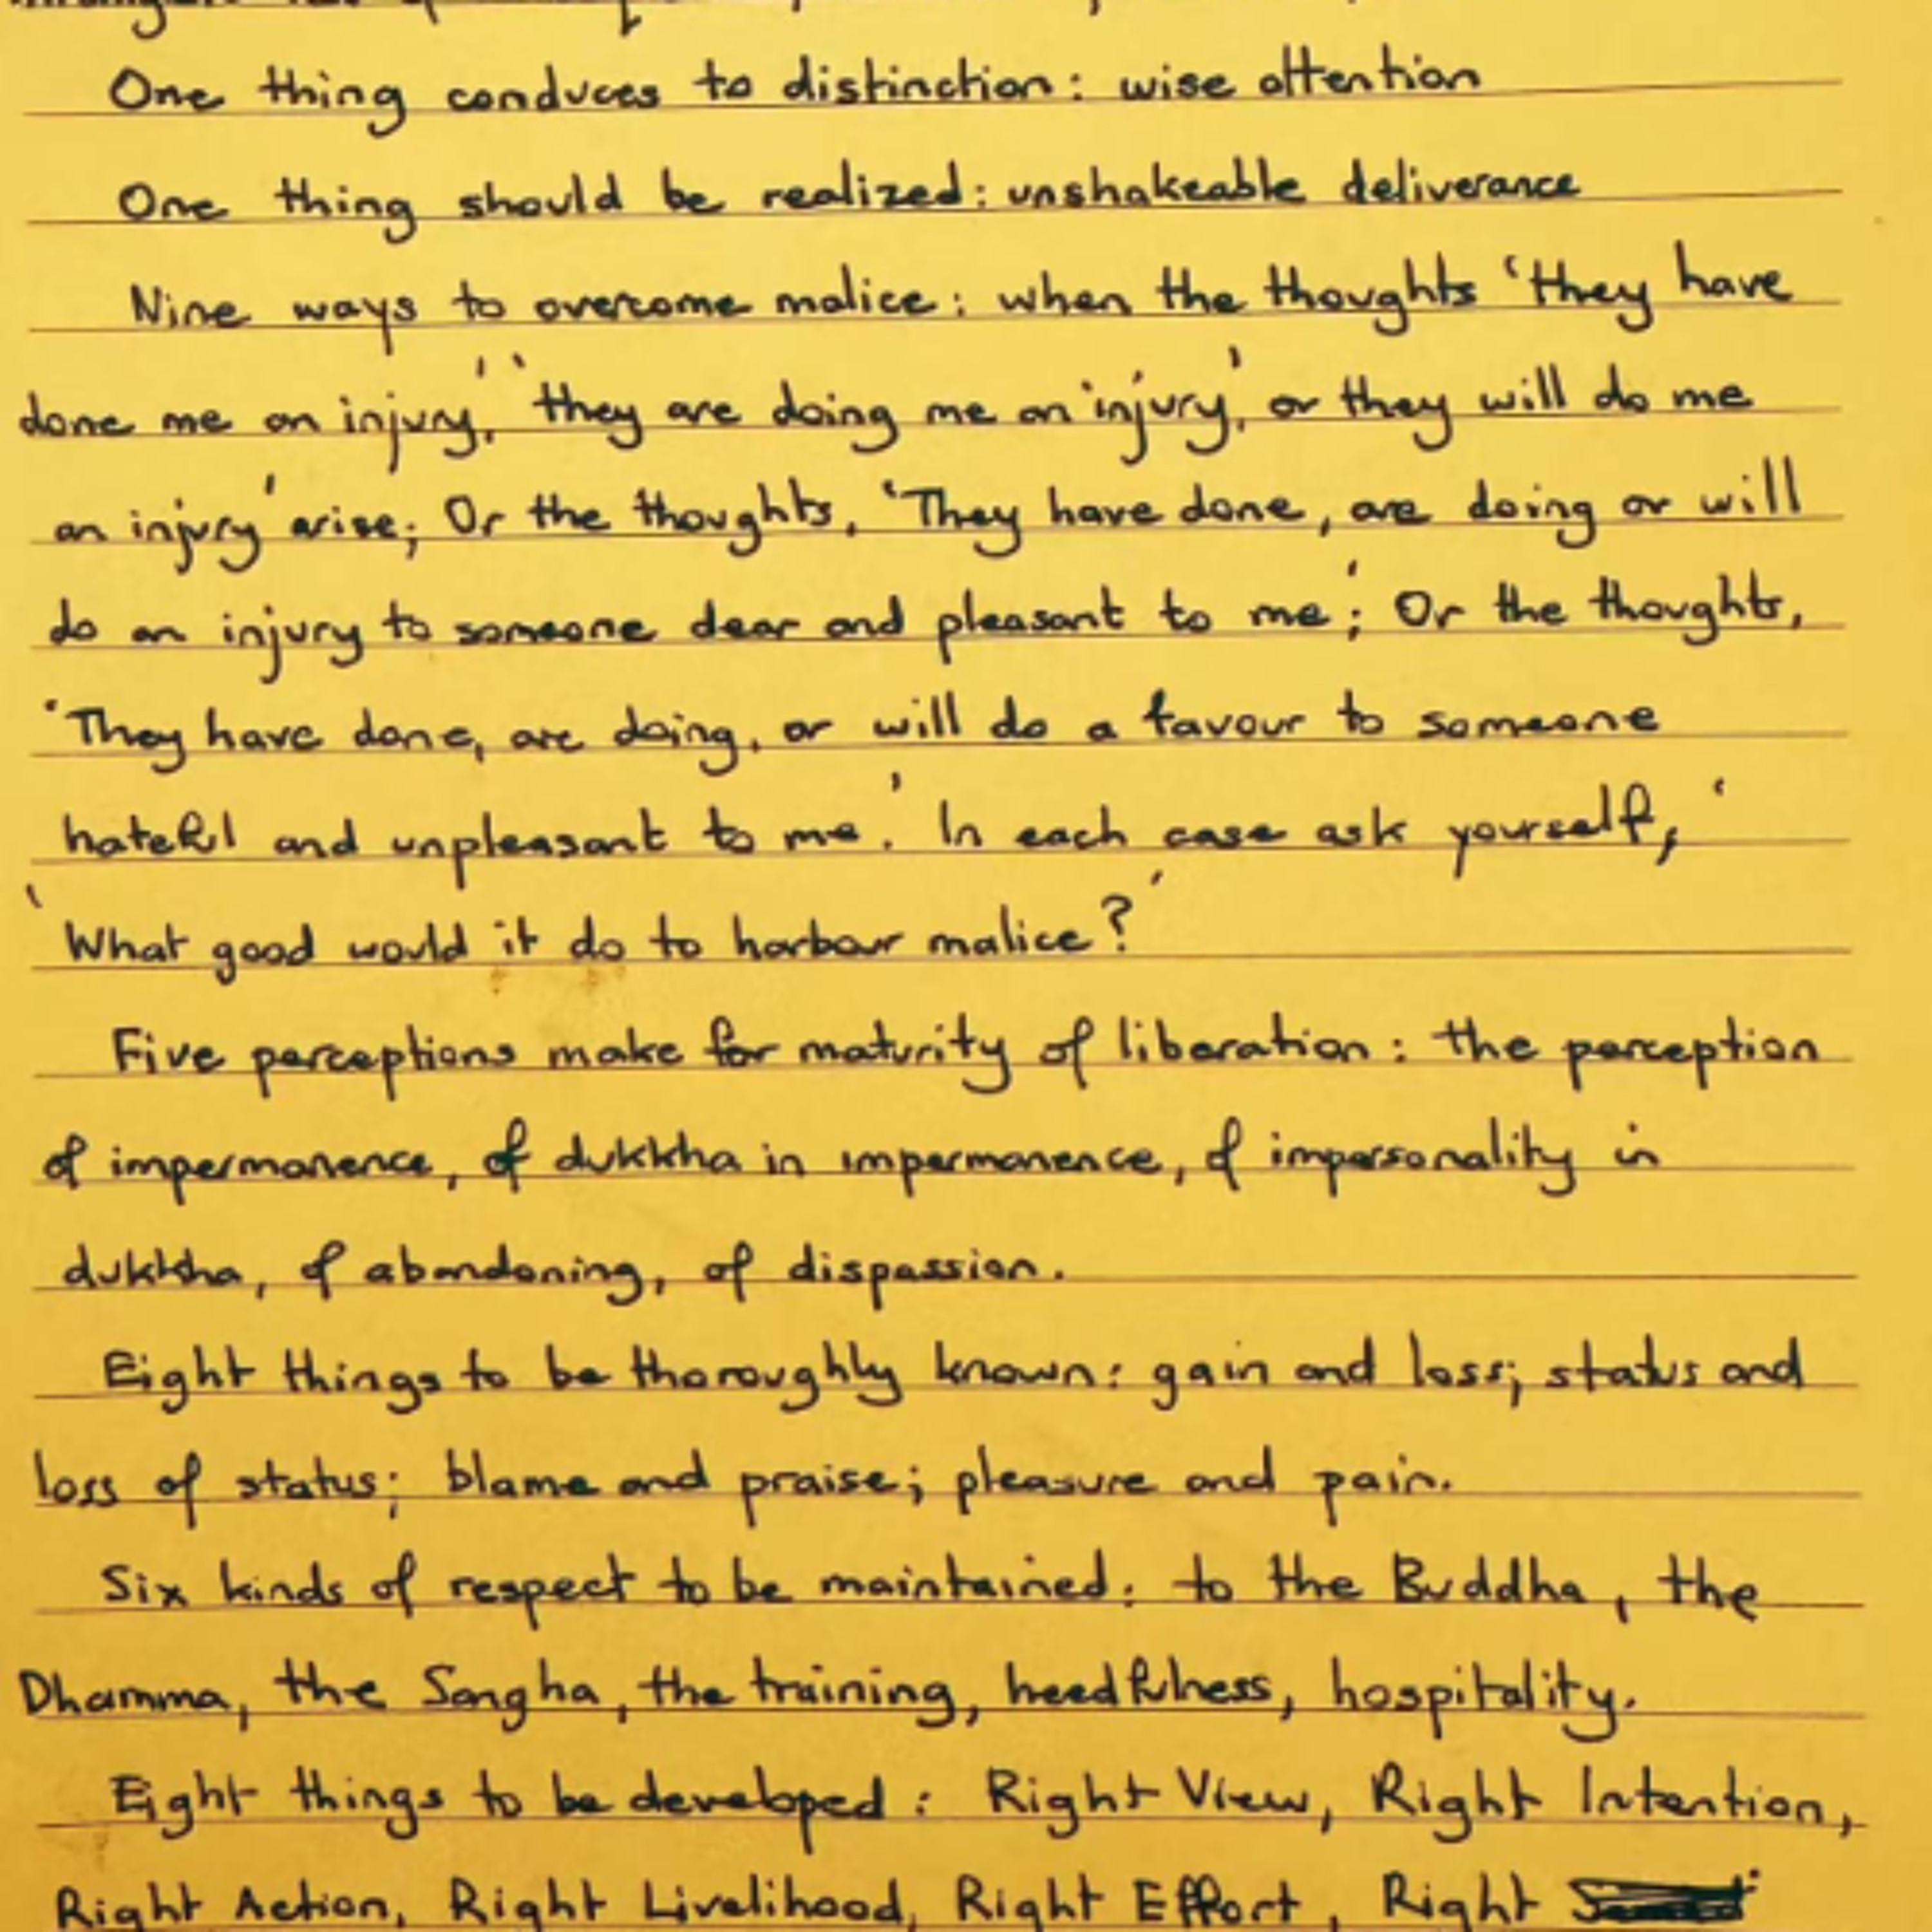 One thing conduces to distinction: wise attention
One thing should be realized: unshakeable deliverance
Nine ways to overcome malice: when the thoughts 'they have
done me an injury,' 'they are doing me an injury', or they will do me
an injury' arise; Or the thoughts, 'They have done, are doing or will
do an injury to someone dear and pleasant to me'; Or the thoughts,
'They have done, are doing, or will do a favour to someone
hateful and unpleasant to me.' In each case ask yourself, '
'What good would it do to harbour malice?'
Five perceptions make for maturity of liberation: the perception
of impermanence, of dukkha in impermanence, of impersonality in
dukkha, of abandoning, of dispassion.
Eight things to be thoroughly known: gain and loss; status and
loss of status; blame and praise; pleasure and pain.
Six kinds of respect to be maintained: to the Buddha, the
Dhamma, the Sangha, the training, heedfulness, hospitality.
Eight things to be developed: Right View, Right Intention,
Right Action, Right Livelihood, Right Effort, Right